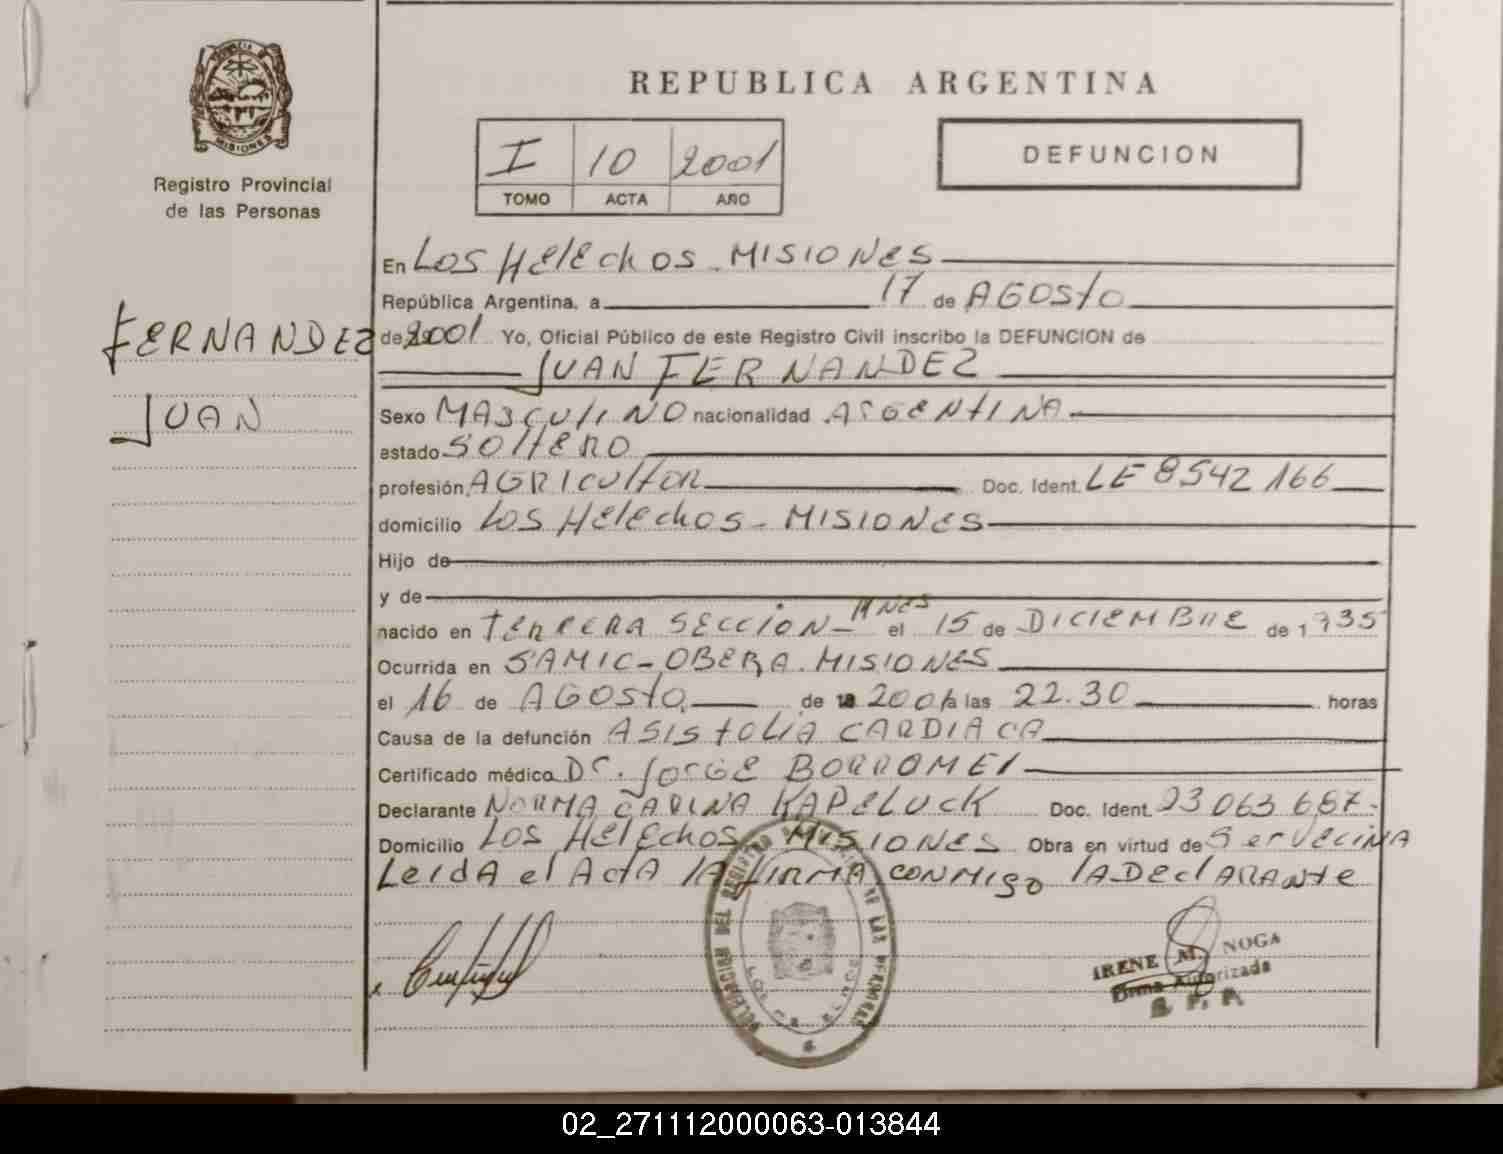 PROVINCIA DE MISIONES
Registro Provincial
de las Personas
FERNANDEZ
JUAN
REPUBLICA ARGENTINA
I 10 2001
TOMO ACTA AÑO
DEFUNCION
En Los Helechos - MISIONES
República Argentina, a 17 de AGOSTO
de 2001 Yo, Oficial Público de este Registro Civil inscribo la DEFUNCION de
JUAN FERNANDEZ
Sexo MASCULINO nacionalidad ARGENTINA
estado SOLTERO
profesión AGRICULTOR Doc. Ident. LE 8542166
domicilio Los Helechos - MISIONES
Hijo de
y de
nacido en TERCERA SECCION - MNES el 15 de DICIEMBRE de 1935
Ocurrida en SAMIC - OBERA. MISIONES
el 16 de AGOSTO de 2001 a las 22.30 horas
Causa de la defunción ASISTOLIA CARDIACA
Certificado médico DR. JORGE BORROMEI
Declarante NORMA CARINA KAPELUCK Doc. Ident. 23063687.-
Domicilio Los Helechos MISIONES Obra en virtud de Ser Vecina
Leida el Acta la FIRMA CONMIGO la Declarante
DELEGACION DEL REGISTRO PROVINCIAL DE LAS PERSONAS
LOS HELECHOS
IRENE M. NOGA
Firma Autorizada
R. P. P.
02_271112000063-013844